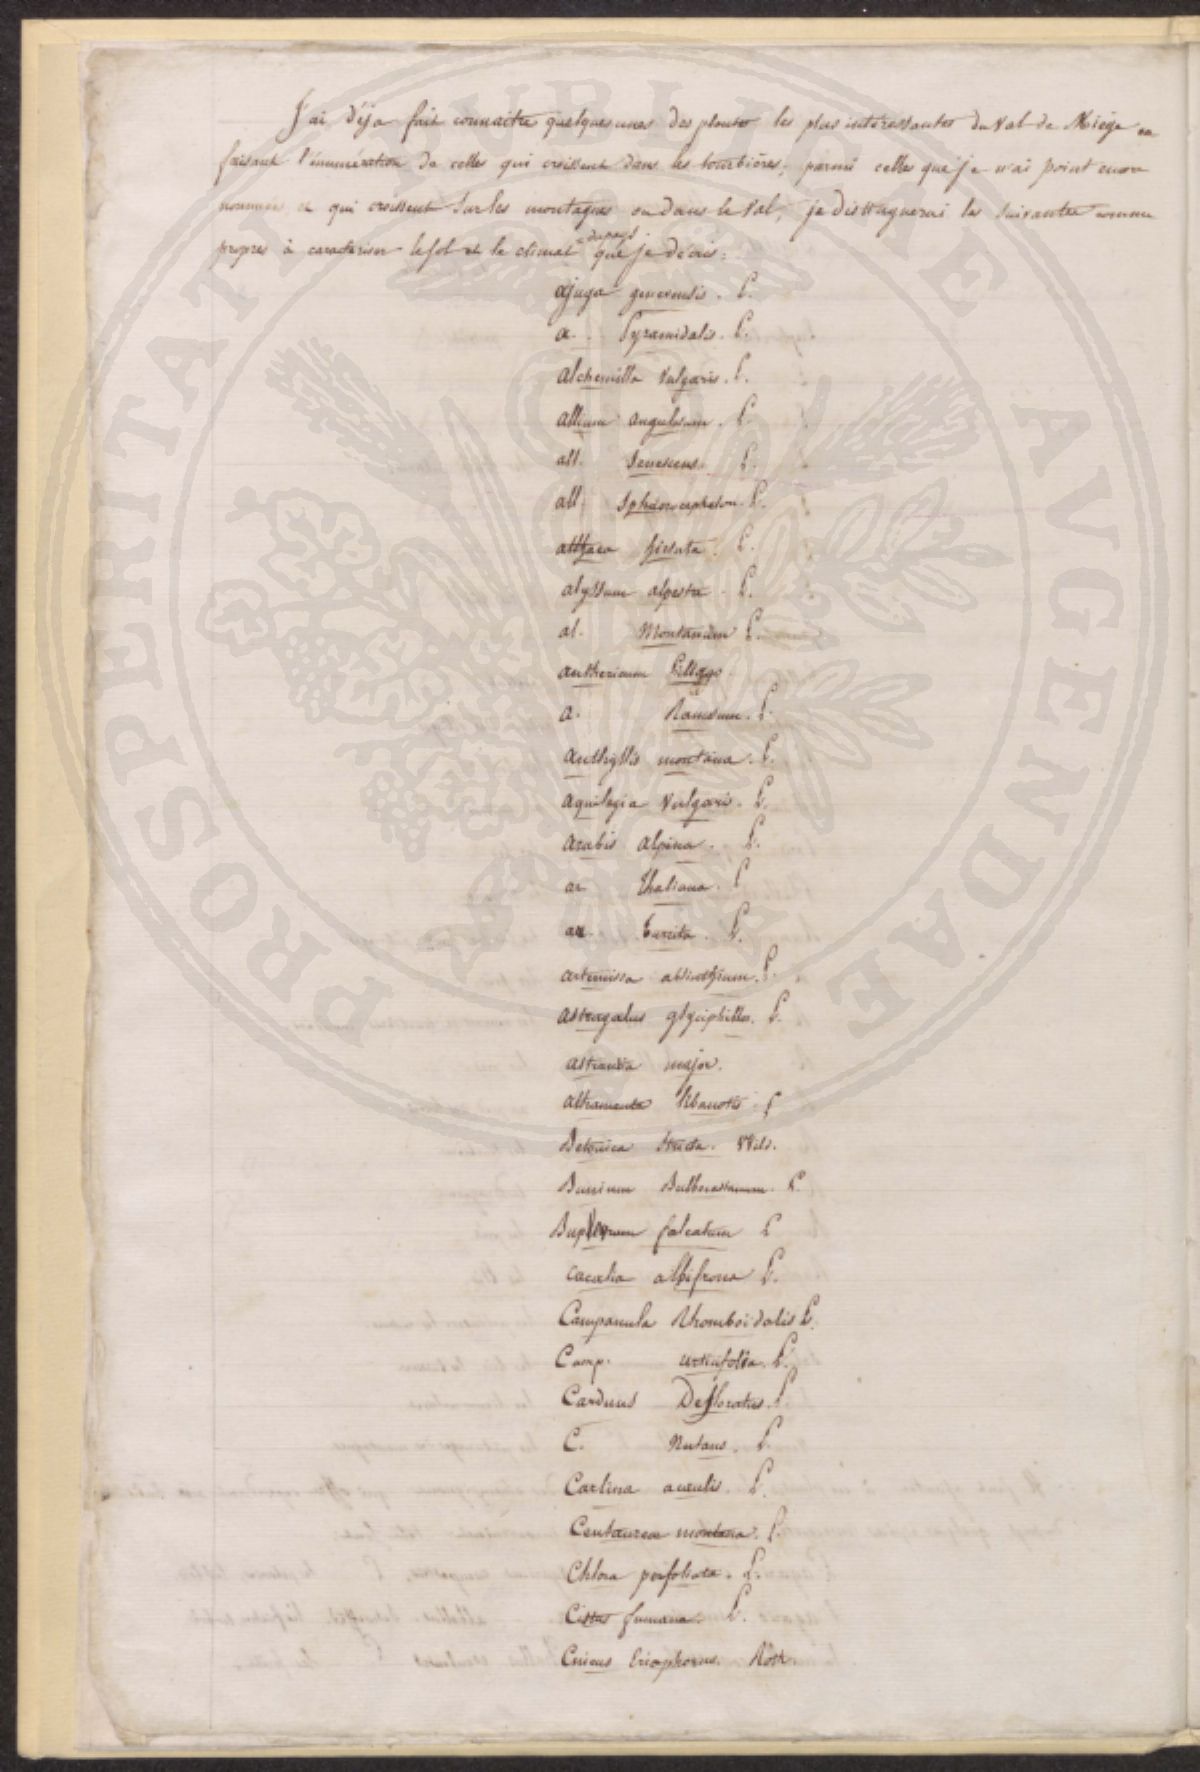 J'ai déja fait connaitre quelques unes des plantes les plus intéressantes du Val de Miège en
faisant l'énumération de celles qui croissent dans les tourbières; parmi celles que je n'ai point encore
nommées et qui croissent sur les montagnes ou dans le Val, je distinguerai les suivantes comme
du pays
propres à caractériser le sol et le climat que je décris:
ajuga genevensis. L.
a. Pyramidalis. L.
alchemilla vulgaris. L.
allium angulosum. L.
all. Senescens. L.
all. Sphærocephalon. L.
althaea hirsuta. L.
alyssum alpestre. L.
al. Montanum L.
anthericum Liliago.
a. Ramosum. L.
anthyllis montana. L.
aquilegia Vulgaris. L.
arabis alpina. L.
ar Thaliana. L
ar. turrita. L.
artemisia absinthium. L.
astragalus glyciphillos. L.
astrantia major.
athamanta Libanotis. L
Betonica Stricta. Wild.
Bunium Bulbocastanum. L.
Buplevrum falcatum L
cacalia albifrons L.
Campanula Rhomboidalis L.
Camp. urticifolia. L.
Carduus Defloratus. L
C. Nutans. L.
Carlina acaulis. L.
Centaurea montana. L.
Chlora perfoliata. L.
Cistus fumana. L.
Cnicus Eriophorus. Roth.
PROSPERITATI PUBLICAE AVGENDAE